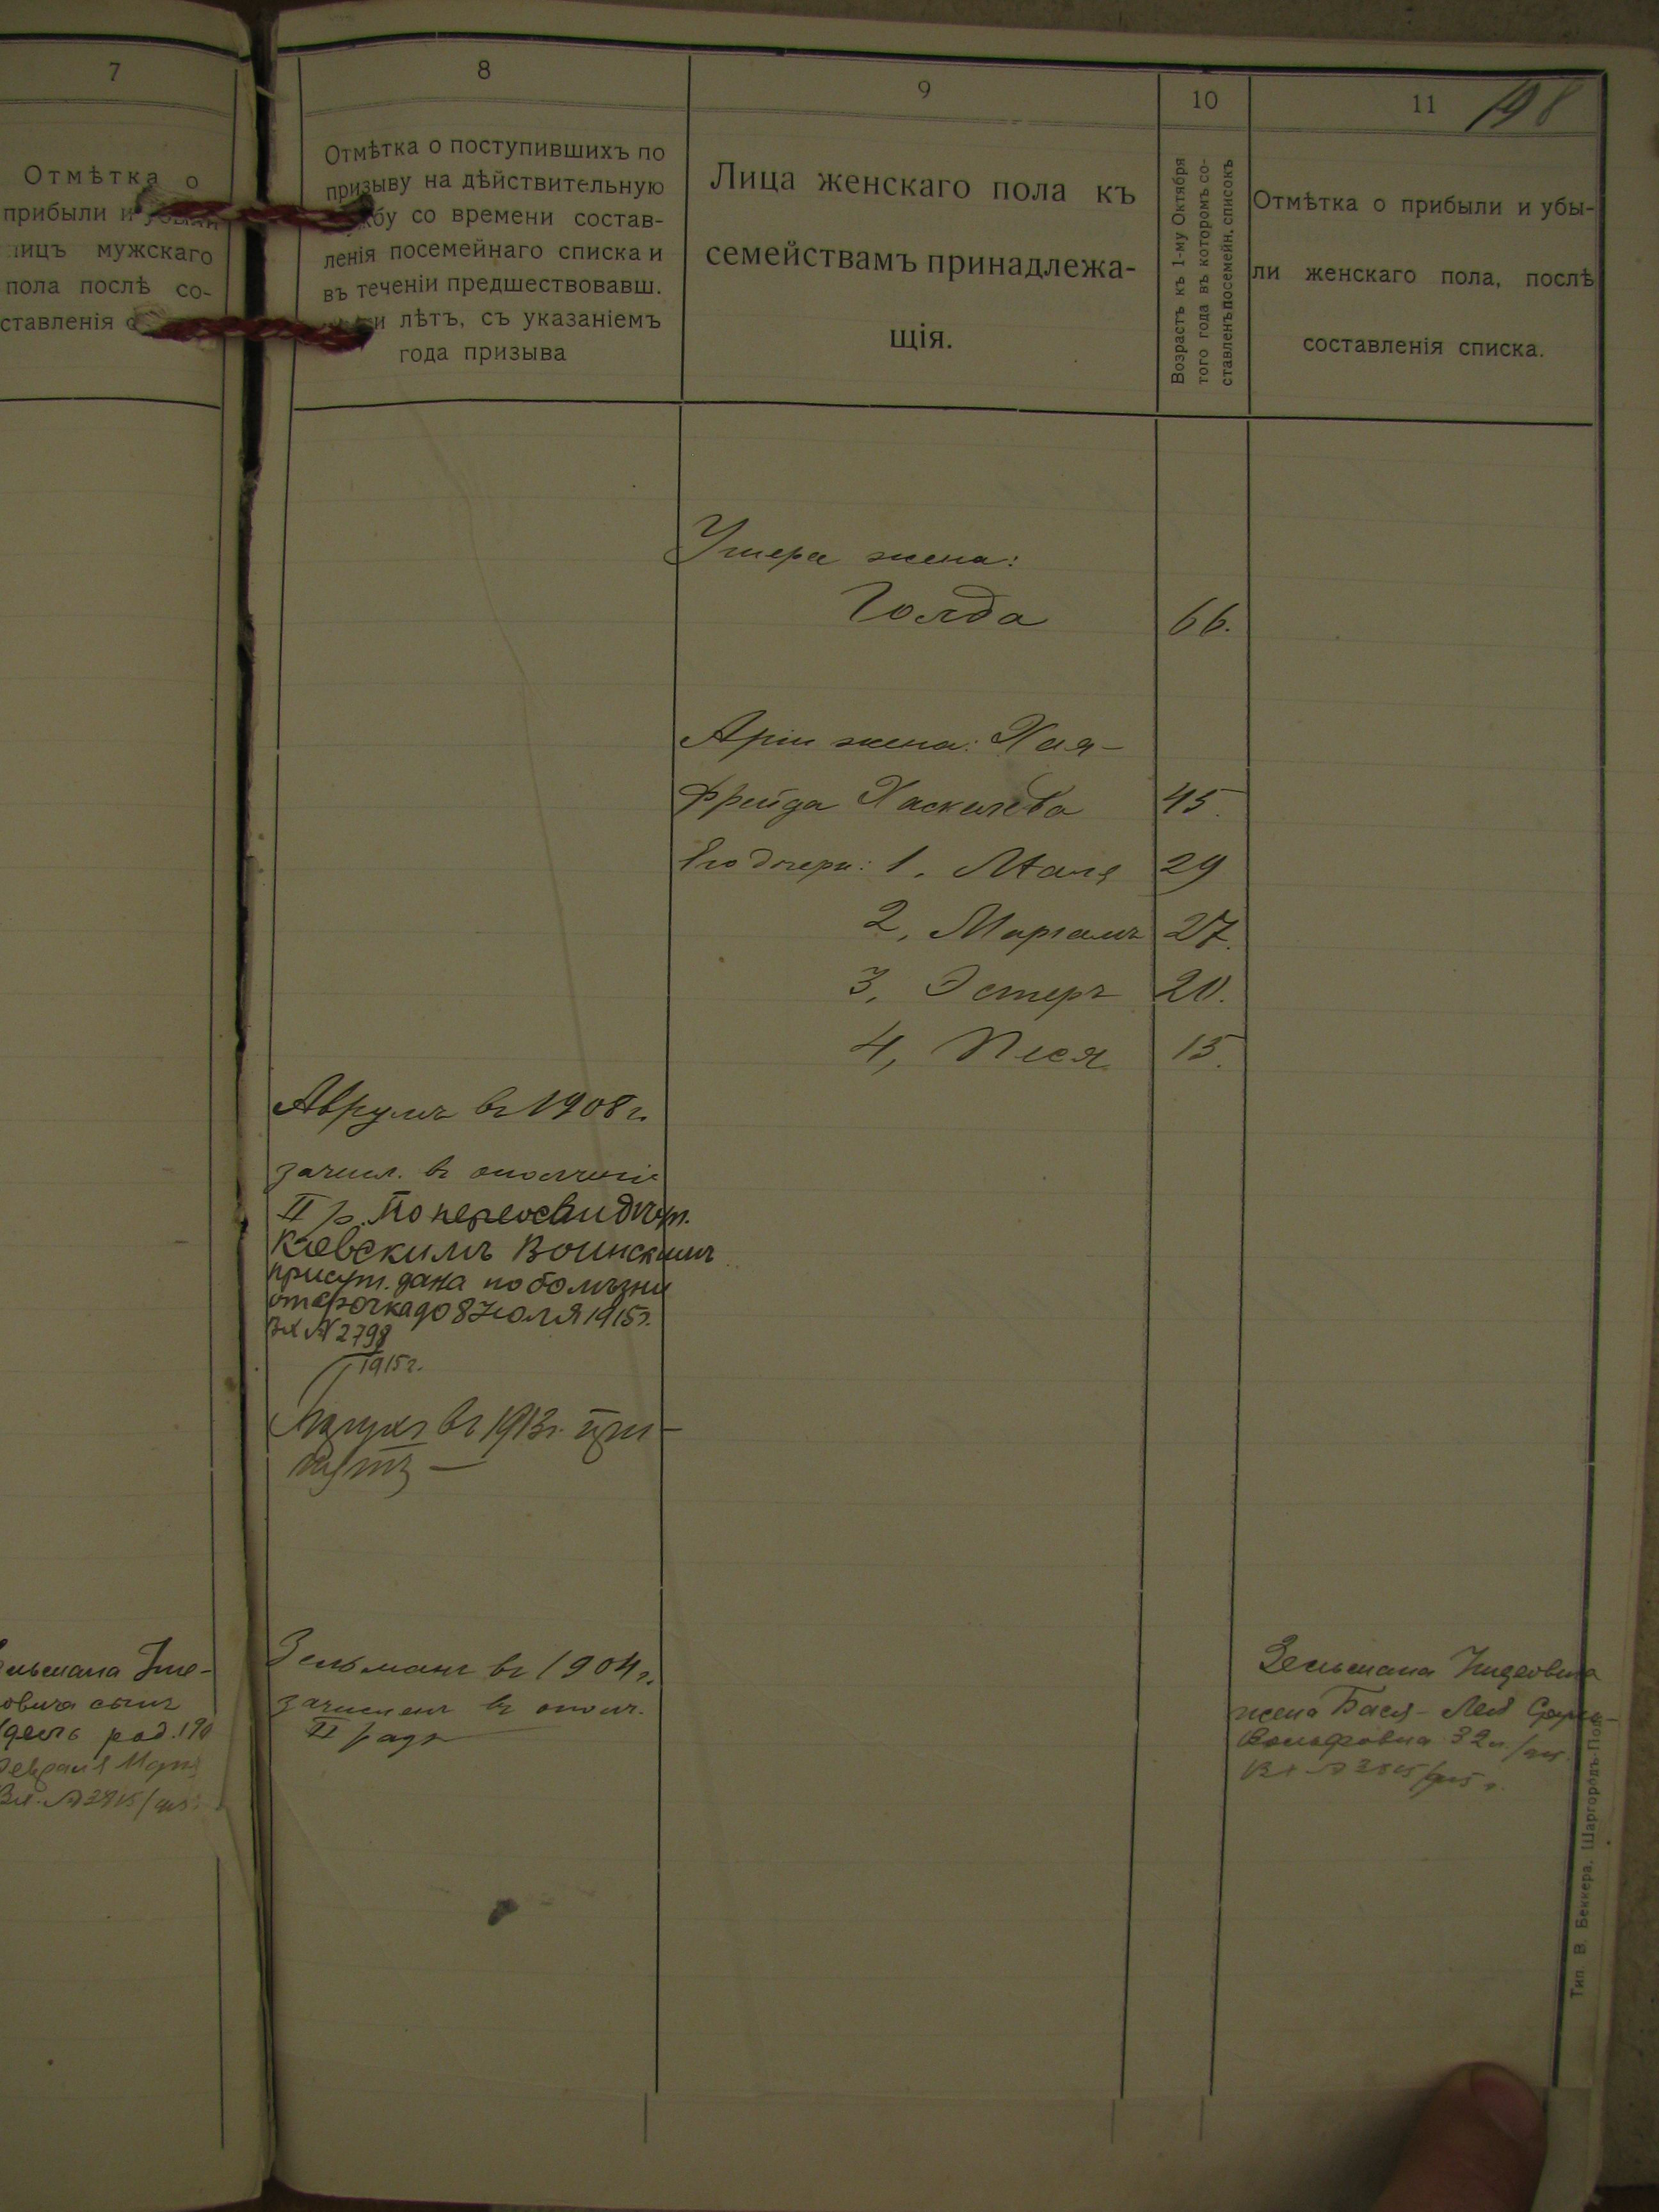 7
Отмѣтка о
прибыли и убыли
лицъ мужскаго
пола послѣ со-
ставленія
8
Отмѣтка о поступившихъ по
призыву на дѣйствительную
службу со времени состав-
ленія посемейнаго списка и
въ теченіи предшествовавш.
лѣтъ, съ указаніемъ
года призыва
9
Лица женскаго пола къ
семействамъ принадлежа-
щія.
10
Возрастъ къ 1-му Октября
того года въ которомъ со-
ставленъ посемейн. списокъ
11
198
Отмѣтка о прибыли и убы-
ли женскаго пола, послѣ
составленія списка.
Ушера жена:
Голда 66.
Арiи жена: Хая-
Фрейда Хаскилева 45.
Его дочери: 1. Маля 29
2, Марiамъ 27.
3, Эстеръ 20.
4, Песя 15.
Аврумъ въ 1908 г.
зачисл. въ ополченiе
II р. По переосвидѣт.
Кiевскимъ Воинскимъ
присут. дана по болѣзни
отсрочка до 8 Iюля 1915 г.
Вх № 2798
1915 г.
въ 1913 г. при-
Зельманъ въ 1904 г.
зачисленъ въ ополч.
II разр
Зельмана
жена Бася-Лея
Вольфовна 32 л.
Вх №
сынъ
род. 190
Тип. В. Беккера, Шаргородъ-Под.